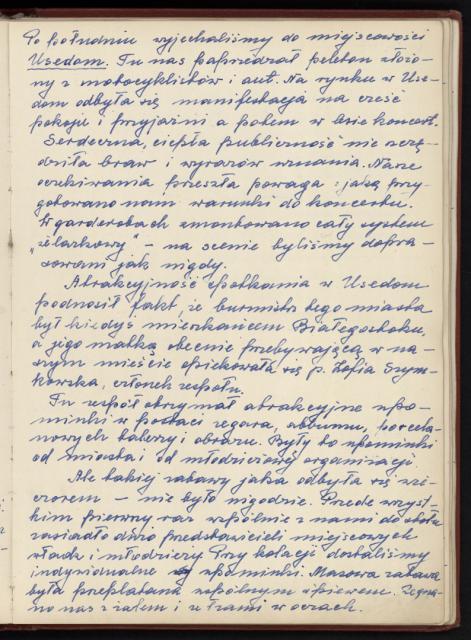 Po południu wyjechaliśmy do miejscowości
Usedom. Tu nas poprzedzał peleton złożo-
ny z motocyklistów i aut. Na rynku w Use-
dom odbyła się manifestacja na cześć
pokoju i przyjaźni a potem w kinie koncert.
Serdeczna, ciepła publiczność nie szczę-
dziła braw i wyrazów uznania. Nasze
oczekiwania przeszła powaga z jaką przy-
gotowano nam warunki do koncertu.
W garderobach zmontowano cały system
"żelazkowy" - na scenie byliśmy dopra-
sowani jak nigdy.
Atrakcyjność spotkania w Usedom
podnosił fakt, że burmistrz tego miasta
był kiedyś mieszkańcem Białegostoku,
a jego matką obecnie przebywającą w na-
szym mieście opiekowała się p. Zofia Szym-
kowska, członek zespołu.
Tu zespół otrzymał atrakcyjne upo-
minki w postaci zegara, albumu, porcela-
nowych talerzy i obrazu. Były to upominki
od miasta i od młodzieżowej organizacji.
Ale takiej zabawy jaka odbyła się wie-
czorem - nie było nigdzie. Przede wszyst-
kim pierwszy raz wspólnie z nami do stołu
zasiadło dużo przedstawicieli miejscowych
władz i młodzieży. Przy kolacji dostaliśmy
indywidualne upominki. Masowa zabawa
była przeplatana wspólnym śpiewem. Żegna-
no nas z żalem i ze łzami w oczach.